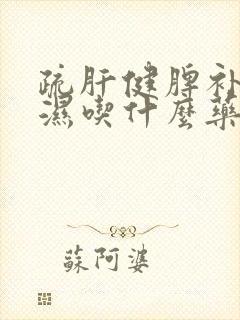 疏肝健脾补
濕喫什麼藥
蘇阿婆